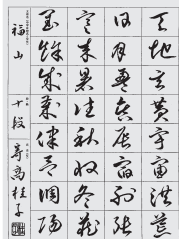 天地玄黃宇宙洪荒
日月盈昃辰宿列張
寒來暑往秋收冬藏
閏餘成歲律呂調陽
福山 十段 高桂子